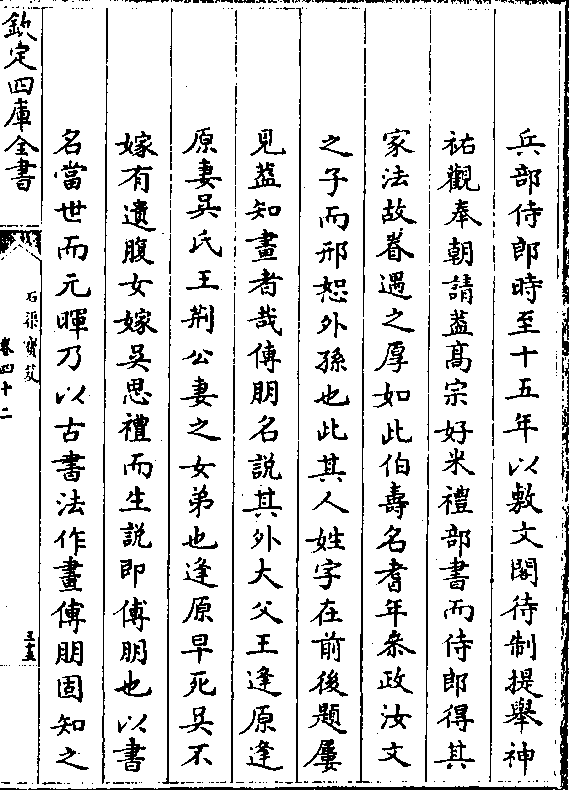 兵部侍郎時至十五年以敷文閣待制提舉神
祐觀奉朝請葢髙宗好米禮部書而侍郎得其
家法故眷遇之厚如此伯壽名耆年叅政汝文
之子而邢恕外孫也此其人姓字在前後題屢
見葢知畫者哉傅朋名說其外大父王逢原逢
原妻吳氏王荆公妻之女弟也逢原早死吳不
嫁有遺腹女嫁吳思禮而生說即傅朋也以書
名當世而元暉乃以古書法作畫傅朋固知之
欽定四庫全書
石渠寳笈
卷四十二